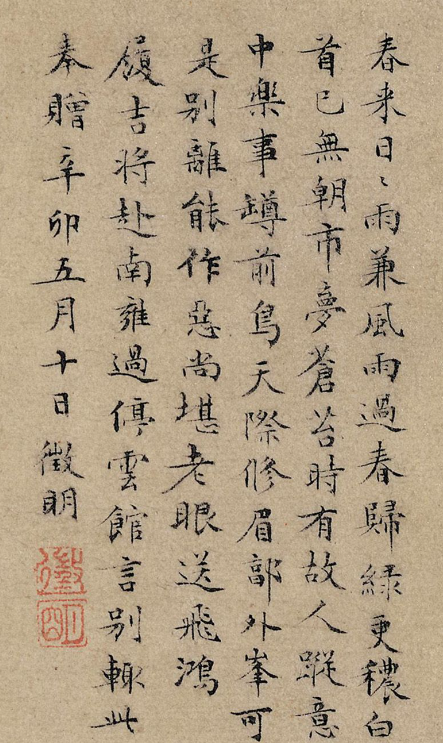 春来日〻雨兼風雨過春歸緑更穠白
首已無朝市夢蒼苔時有故人蹤意
中樂事罇前鳥天際脩眉郭外峯可
是别離能作惡尚堪老眼送飛鴻
履吉将赴南雍過停雲館言别輙此
奉贈辛卯五月十日徵明
徵明